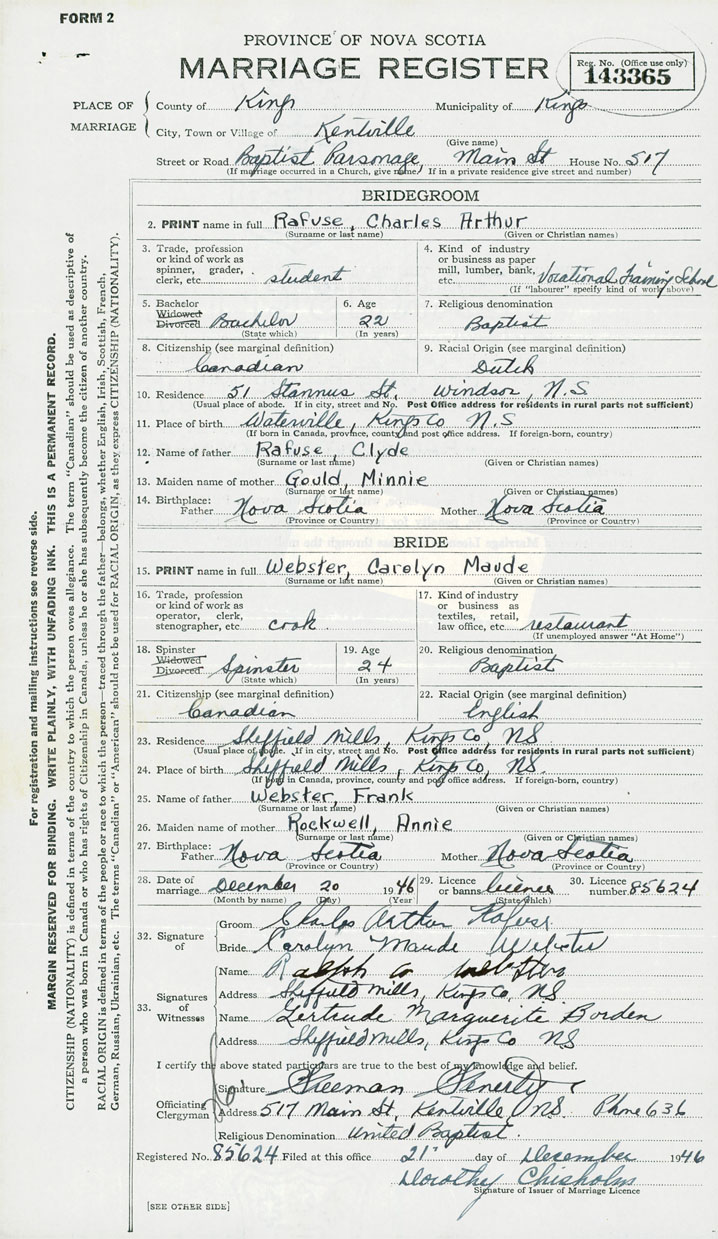 FORM 2
PROVINCE OF NOVA SCOTIA
MARRIAGE REGISTER
Reg. No. (Office use only)
143365
PLACE OF MARRIAGE
County of Kings Municipality of Kings
City, Town or Village of Kentville
(Give name)
Street or Road Baptist Parsonage, Main St House No. 517
(If marriage occurred in a Church, give name) If in a private residence give street and number)
BRIDEGROOM
2. PRINT name in full Rafuse, Charles Arthur
(Surname or last name) (Given or Christian names)
3. Trade, profession or kind of work as spinner, grader, clerk, etc. student
4. Kind of industry or business as paper mill, lumber, bank, etc. Vocational Training School
(If "labourer" specify kind of work above)
5. Bachelor Widowed Divorced Bachelor
(State which)
6. Age 22
(In years)
7. Religious denomination
Baptist
8. Citizenship (see marginal definition)
Canadian
9. Racial Origin (see marginal definition)
Dutch
10. Residence 51 Stannus St. Windsor, N.S.
(Usual place of abode. If in city, street and No. Post Office address for residents in rural parts not sufficient)
11. Place of birth Waterville, Kings Co N.S
(If born in Canada, province, county and post office address. If foreign-born, country)
12. Name of father Rafuse, Clyde
(Surname or last name) (Given or Christian names)
13. Maiden name of mother Gould, Minnie
(Surname or last name) (Given or Christian names)
14. Birthplace: Father Nova Scotia Mother Nova Scotia
(Province or Country) (Province or Country)
BRIDE
15. PRINT name in full Webster, Carolyn Maude
(Surname or last name) (Given or Christian names)
16. Trade, profession or kind of work as operator, clerk, stenographer, etc. cook
17. Kind of industry or business as textiles, retail, law office, etc. restaurant
(If unemployed answer "At Home")
18. Spinster Widowed Divorced Spinster
(State which)
19. Age 24
(In years)
20. Religious denomination
Baptist
21. Citizenship (see marginal definition)
Canadian
22. Racial Origin (see marginal definition)
English
23. Residence Sheffield Mills, Kings Co, NS
(Usual place of abode. If in city, street and No. Post Office address for residents in rural parts not sufficient)
24. Place of birth Sheffield Mills, Kings Co, NS.
(If born in Canada, province, county and post office address. If foreign-born, country)
25. Name of father Webster, Frank
(Surname or last name) (Given or Christian names)
26. Maiden name of mother Rockwell, Annie
(Surname or last name) (Given or Christian names)
27. Birthplace: Father Nova Scotia Mother Nova Scotia
(Province or Country) (Province or Country)
28. Date of marriage December 20 1946
(Month by name) (Day) (Year)
29. Licence or banns licence
(State which)
30. Licence number 85624
32. Signature of
Groom Charles Arthur Rafuse
Bride Carolyn Maude Webster
33. Signatures of Witnesses
Name Ralph Webster
Address Sheffield Mills, Kings Co, NS.
Name Gertrude Marguerite Borden
Address Sheffield Mills, Kings Co NS
I certify the above stated particulars are true to the best of my knowledge and belief.
Officiating Clergyman
Signature Freeman Fenerty
Address 517 Main St, Kentville NS. Phone 636
Religious Denomination United Baptist.
Registered No. 85624 Filed at this office 21st day of December 1946
Dorothy Chisholm
Signature of Issuer of Marriage Licence
[SEE OTHER SIDE]
For registration and mailing instructions see reverse side.
MARGIN RESERVED FOR BINDING. WRITE PLAINLY, WITH UNFADING INK. THIS IS A PERMANENT RECORD.
CITIZENSHIP (NATIONALITY) is defined in terms of the country to which the person owes allegiance. The term "Canadian" should be used as descriptive of
a person who was born in Canada or who has rights of Citizenship in Canada, unless he or she has subsequently become the citizen of another country.
RACIAL ORIGIN is defined in terms of the people or race to which the person—traced through the father—belongs, whether English, Irish, Scottish, French,
German, Russian, Ukrainian, etc. The terms "Canadian" or "American" should not be used for RACIAL ORIGIN, as they express CITIZENSHIP (NATIONALITY).